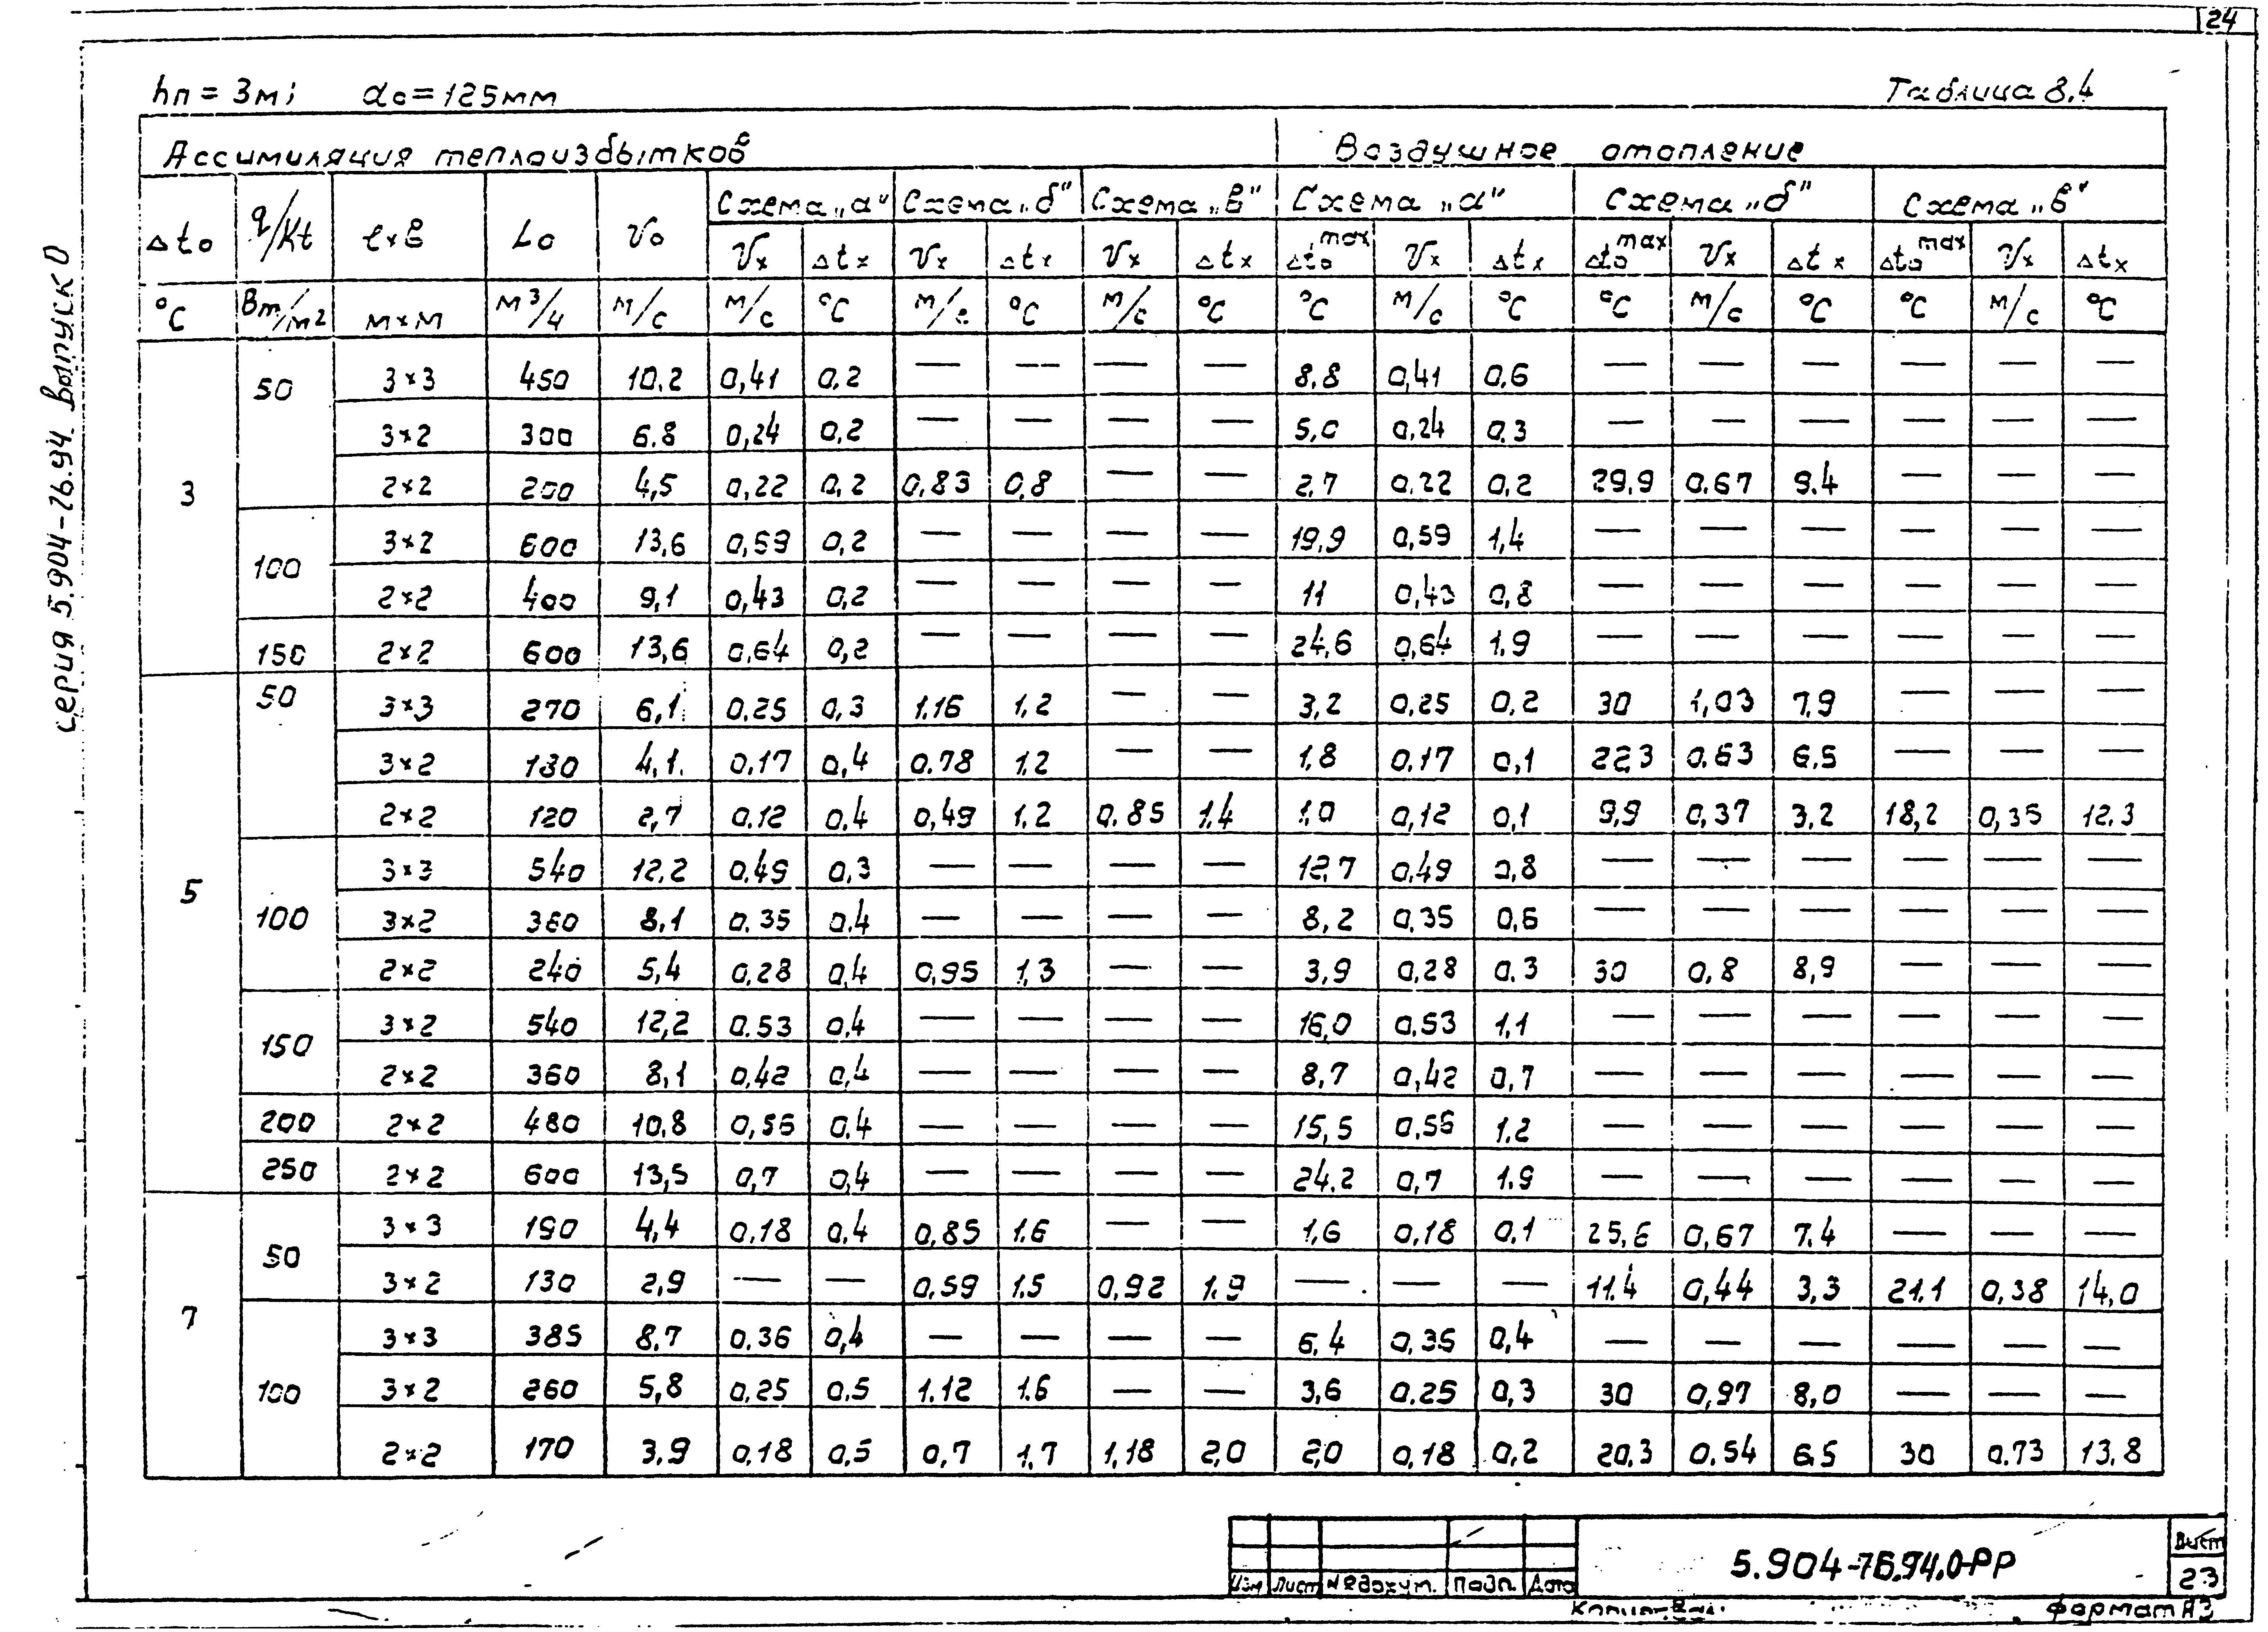 24
hп = 3м; dо = 125мм Таблица 8.4
Ассимиляция теплоизбытков Воздушное отопление
Δtо q/Kt ℓ×в Lо Vо Схема „а" Схема „б" Схема „в" Схема „а" Схема „б" Схема „в"
Vx Δtx Vx Δtx Vx Δtx Δtоmax Vx Δtx Δtоmax Vx Δtx Δtоmax Vx Δtx
°C Вт/м2 м×м м³/ч м/с м/с °C м/с °C м/с °C °C м/с °C °C м/с °C °C м/с °C
3 50 3×3 450 10.2 0,41 0.2 — — — — 8,8 0,41 0.6 — — — — — —
3×2 300 6.8 0,24 0,2 — — — — 5,0 0,24 0.3 — — — — — —
2×2 200 4,5 0,22 0,2 0,83 0,8 — — 2,7 0.22 0,2 29,9 0.67 9.4 — — —
100 3×2 600 13,6 0,59 0,2 — — — — 19,9 0,59 1,4 — — — — — —
2×2 400 9,1 0,43 0,2 — — — — 11 0,43 0,8 — — — — — —
150 2×2 600 13,6 0,64 0,2 — — — — 24,6 0,64 1.9 — — — — — —
5 50 3×3 270 6,1 0.25 0,3 1.16 1,2 — — 3,2 0,25 0.2 30 1,03 7,9 — — —
3×2 180 4,1 0.17 0,4 0.78 1.2 — — 1,8 0.17 0,1 22,3 0.63 6,5 — — —
2×2 120 2,7 0.12 0.4 0,49 1,2 0.85 1.4 1,0 0,12 0,1 9,9 0,37 3,2 18,2 0,35 12.3
100 3×3 540 12,2 0.49 0,3 — — — — 12,7 0,49 0,8 — — — — — —
3×2 360 8,1 0.35 0.4 — — — — 8,2 0,35 0,6 — — — — — —
2×2 240 5,4 0,28 0,4 0,95 1,3 — — 3,9 0,28 0.3 30 0,8 8,9 — — —
150 3×2 540 12,2 0.53 0,4 — — — — 16,0 0,53 1,1 — — — — — —
2×2 360 8,1 0,42 0,4 — — — — 8,7 0,42 0,7 — — — — — —
200 2×2 480 10,8 0,56 0.4 — — — — 15,5 0,56 1,2 — — — — — —
250 2×2 600 13,5 0,7 0,4 — — — — 24.2 0,7 1.9 — — — — — —
7 50 3×3 190 4,4 0,18 0.4 0,85 1.6 — — 1,6 0,18 0.1 25,6 0,67 7.4 — — —
3×2 130 2,9 — — 0,59 1.5 0,92 1,9 — — — 11.4 0,44 3,3 21.1 0,38 14,0
100 3×3 385 8,7 0.36 0,4 — — — — 6.4 0,36 0,4 — — — — — —
3×2 260 5,8 0,25 0.5 1.12 1.6 — — 3,6 0.25 0,3 30 0,97 8,0 — — —
2×2 170 3,9 0,18 0,5 0,7 1,7 1,18 2,0 2,0 0,18 0,2 20,3 0.54 6.5 30 0.73 13,8
серия 5.904-76.94 выпуск 0
5.904-76.94.0-РР
Изм Лист №докум. Подп. Дата
Лист
23
Формат А3